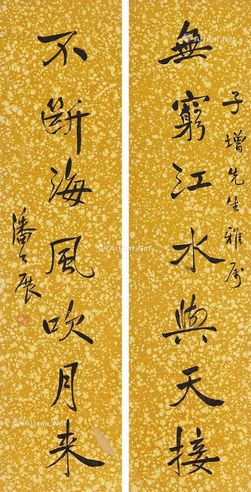 子增先生雅屬
無窮江水與天接
不斷海風吹月来
潘公展